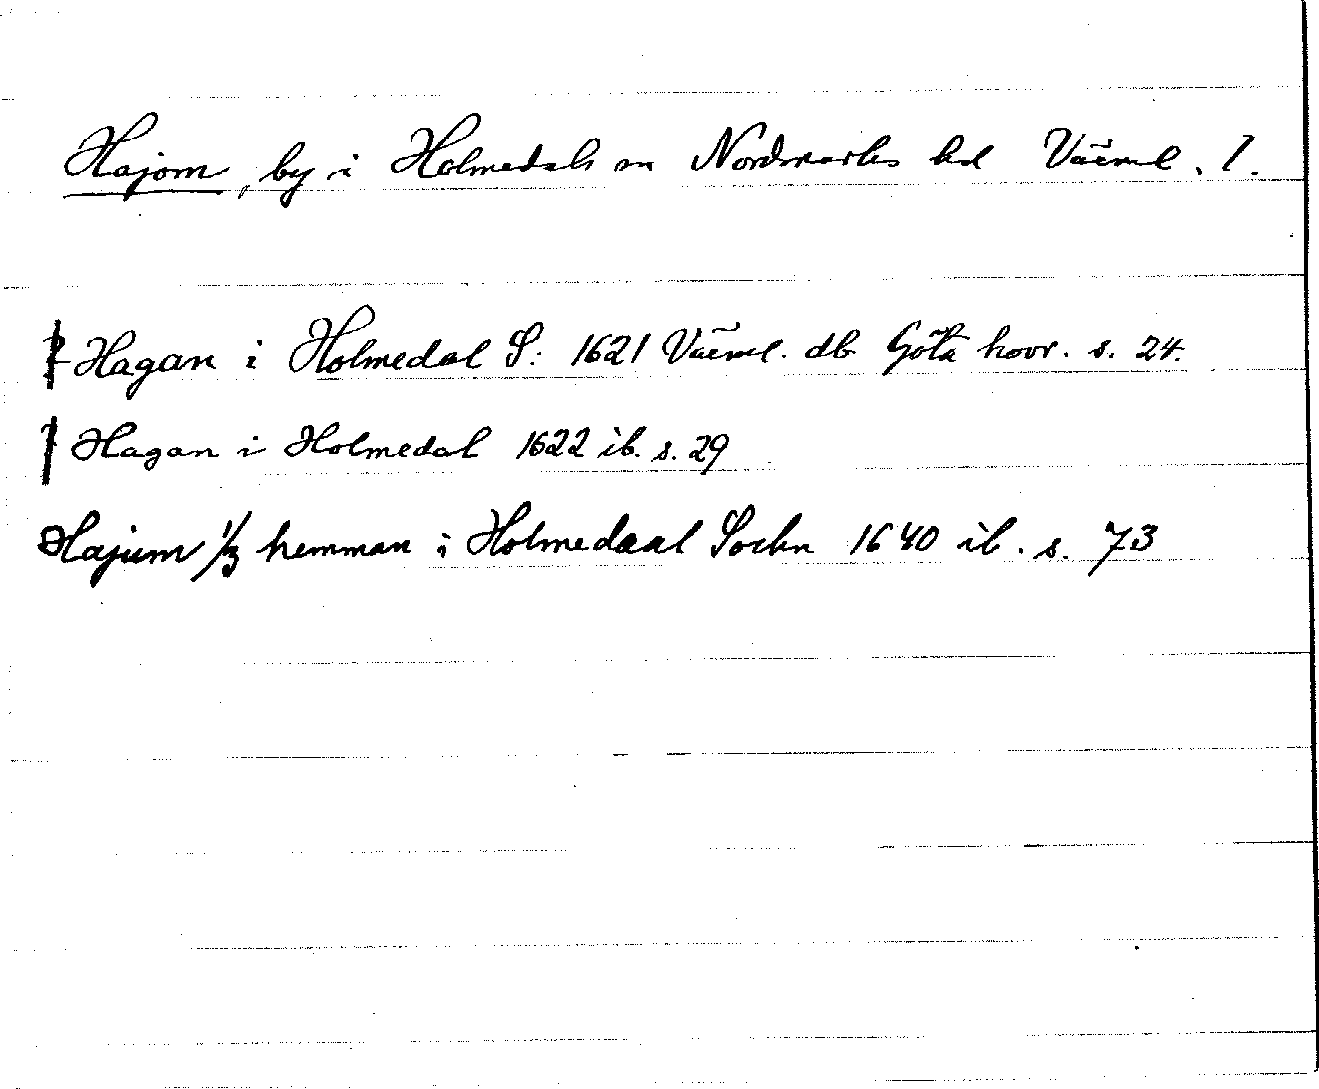 Hajom, by i Holmedals sn Nordmarks hd Värml. l.
Hagan i Holmedal S: 1621 Värml. db Göta hovr. s. 24.
Hagan i Holmedal 1622 ib. s. 29
Hajum 1/3 hemman i Holmedaal Sockn 1640 ib. s. 73